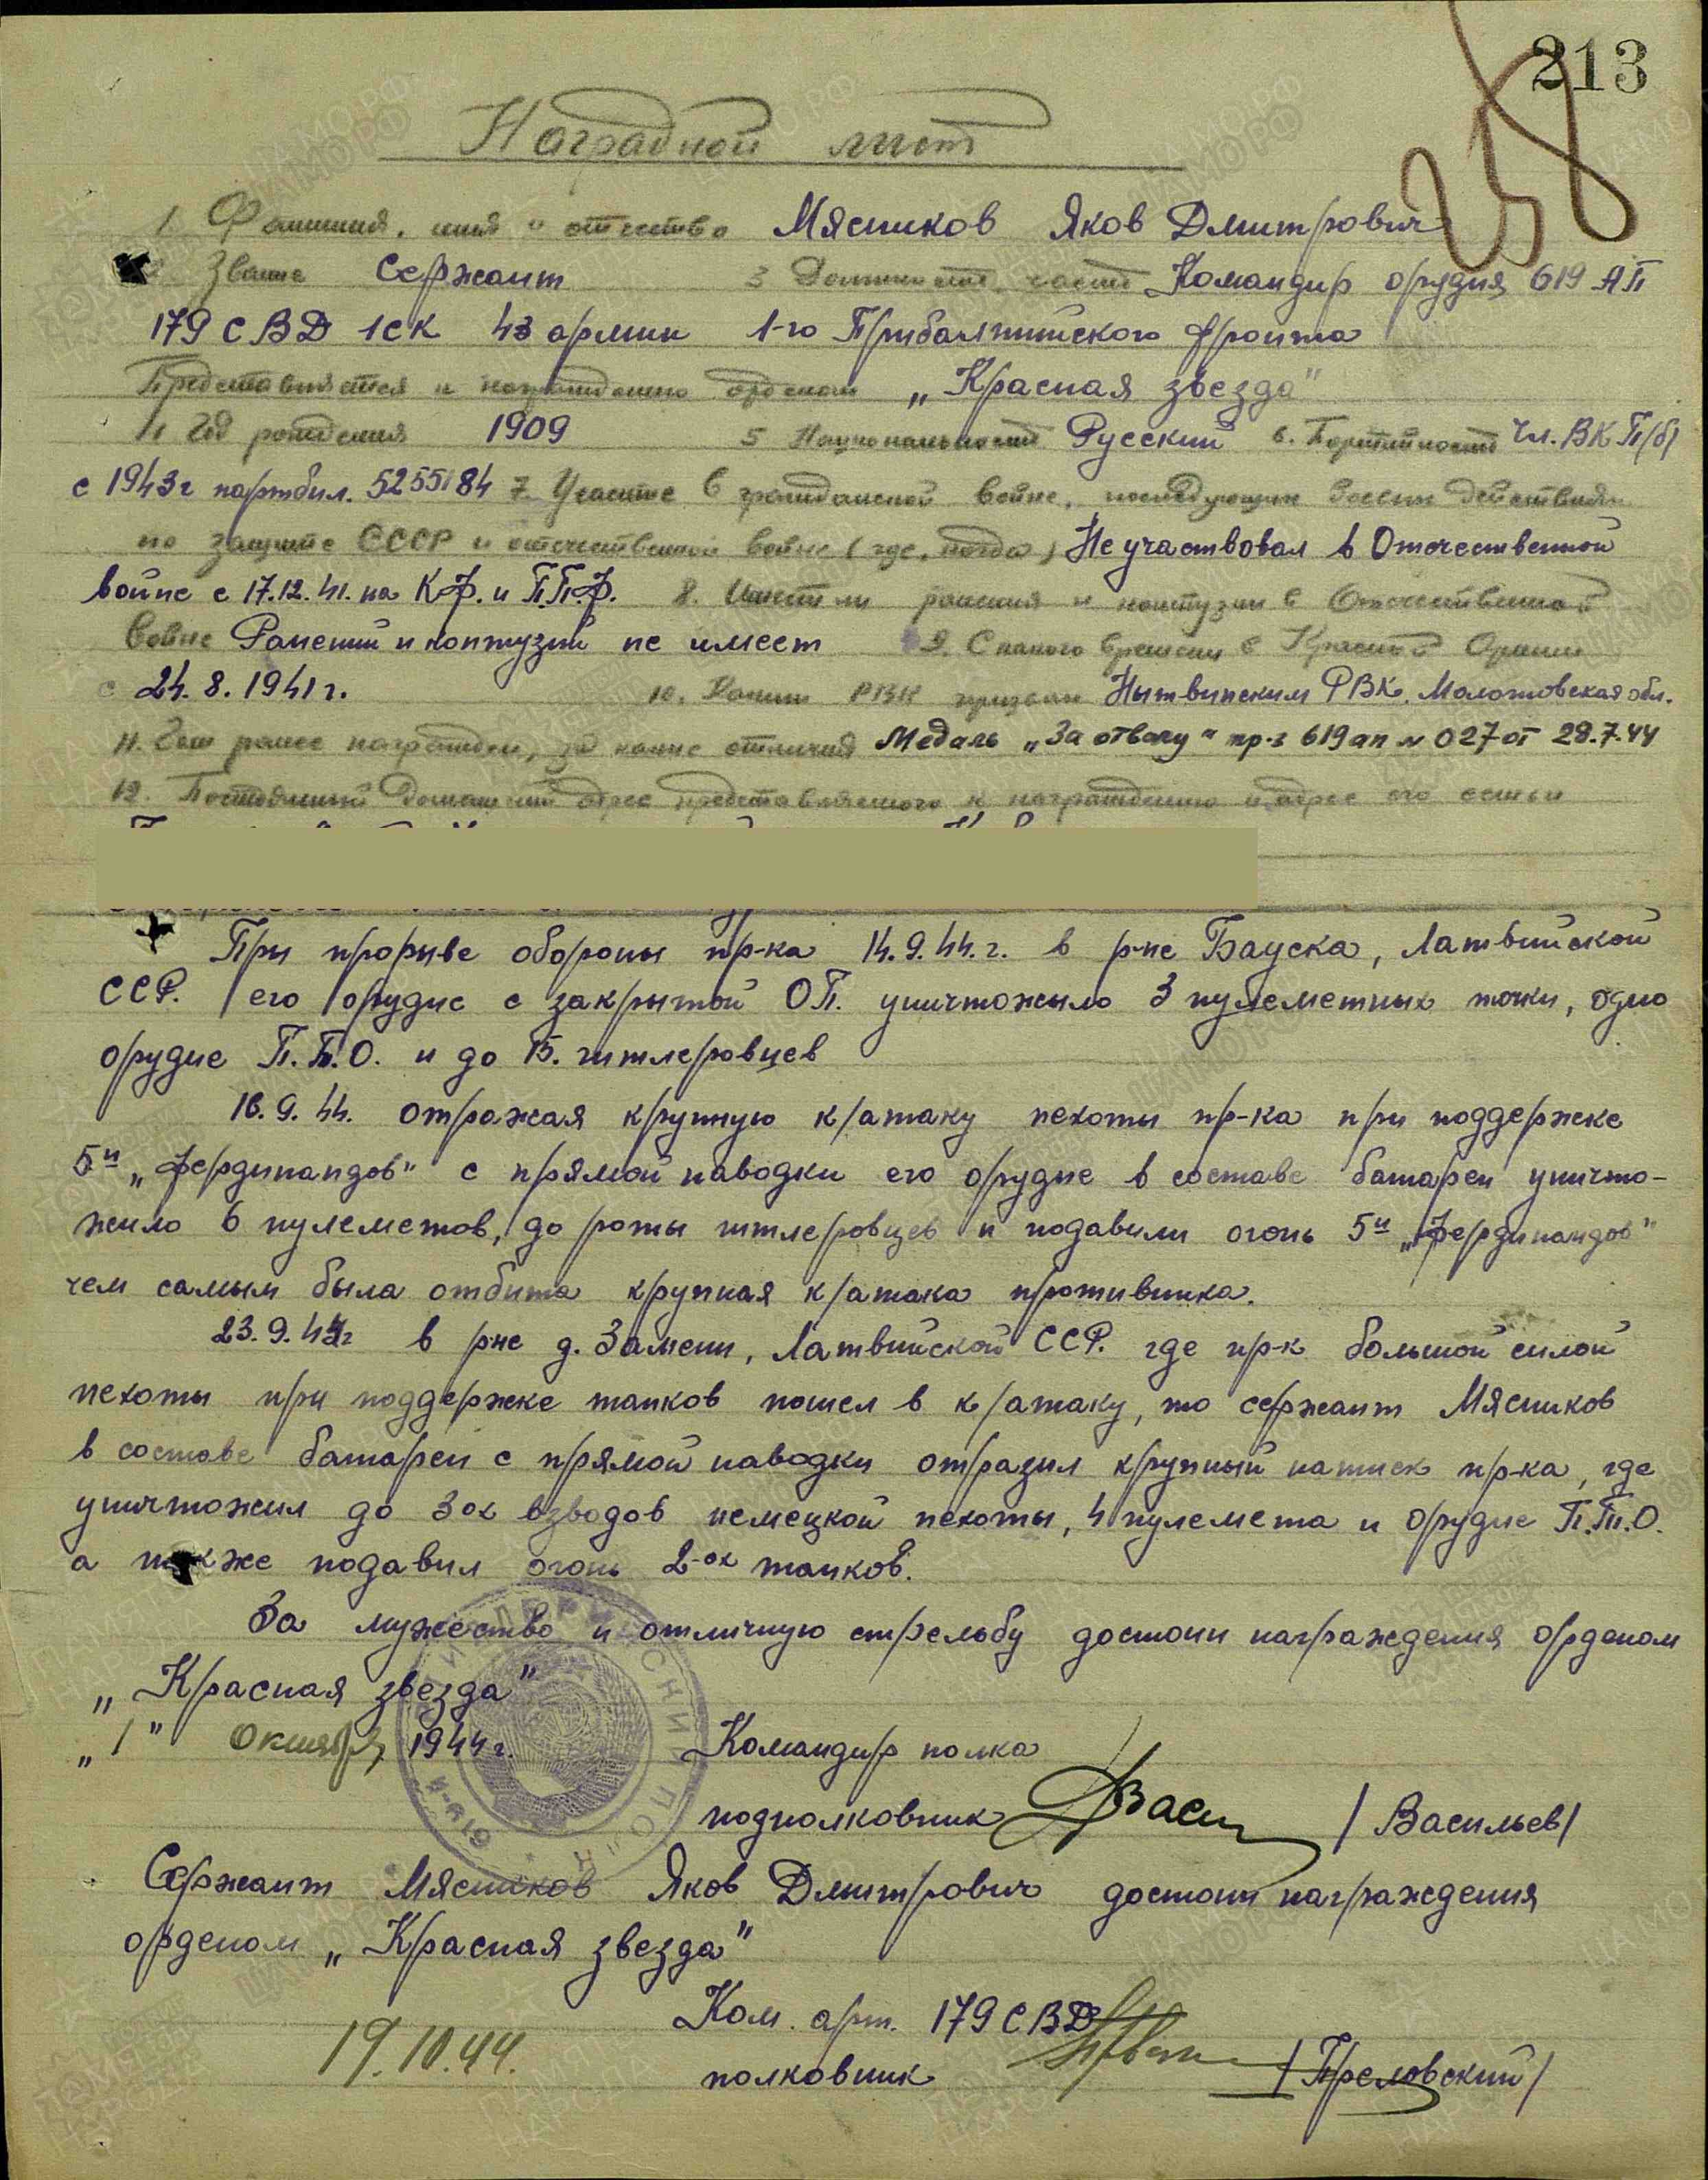 213
258
Наградной лист
1. Фамилия, имя и отчество Мясников Яков Дмитрович
2. Звание Сержант 3 Должность, часть Командир орудия 619 АП
179 СВД 1СК 43 армии 1-го Прибалтийского фронта
Представляется к награждению орденом „Красная звезда"
4 Год рождения 1909 5 Национальность Русский 6. Партийность Чл. ВКП/б/
с 1943г партбил. 5255184 7. Участие в гражданской войне, последующих боевых действиях
по защите СССР и отечественной войне (где, когда) Не участвовал в Отечественной
войне с 17.12.41. на К.Ф. и П.П.Ф. 8. Имеет ли ранения и контузии в Отечественной
войне Ранений и контузий не имеет 9. С какого времени в Красной Армии
с 24.8.1941г. 10. Каким РВК призван Нытвинским РВК. Молотовская обл.
11. Чем ранее награжден, за какие отличия Медаль „За отвагу" пр-з 619 ап № 027 от 28.7.44
12. Постоянный домашний адрес представляемого к награждению и адрес его семьи
При прорыве обороны пр-ка 14.9.44.г. в р-не Бауска, Латвийской
ССР. его орудие с закрытой ОП. уничтожило 3 пулеметных точки, одно
орудие П.Т.О. и до 15. гитлеровцев
16.9.44. отражая крупную к/атаку пехоты пр-ка при поддержке
5и „Фердинандов" с прямой наводки его орудие в составе батареи уничто-
жило 6 пулеметов, до роты гитлеровцев и подавили огонь 5и „Фердинандов"
чем самым была отбита крупная к/атака противника.
23.9.44г в р-не д. Замени, Латвийской ССР. где пр-к большой силой
пехоты при поддержке танков пошел в к/атаку, то сержант Мясников
в составе батареи с прямой наводки отразил крупный натиск пр-ка, где
уничтожил до 3ох взводов немецкой пехоты, 4 пулемета и орудие П.Т.О.
а также подавил огонь 2-ох танков.
За мужество и отличную стрельбу достоин награждения орденом
„Красная звезда"
„1" Октября 1944г. Командир полка
подполковник Васи /Васильев/
Сержант Мясников Яков Дмитрович достоин награждения
орденом „Красная звезда"
Ком. арт. 179 СВД
19.10.44. полковник /Преловский/